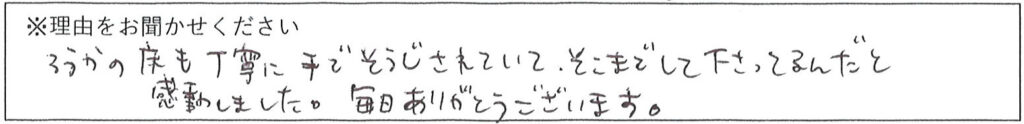 ※理由をお聞かせください
ろうかの床も丁寧に手でそうじされていて、そこまでして下さってるんだと
感動しました。毎日ありがとうございます。